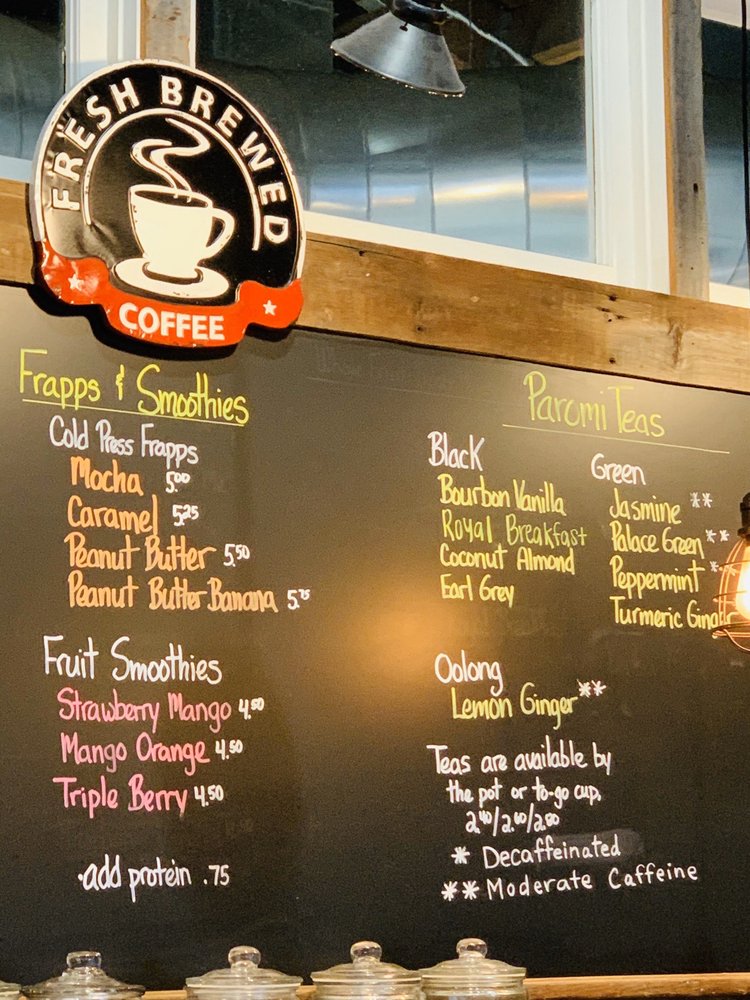 FRESH BREWED
COFFEE
Frapps & Smoothies
Cold Press Frapps
Mocha 5.00
Caramel 5.25
Peanut Butter 5.50
Peanut Butter Banana 5.75
Fruit Smoothies
Strawberry Mango 4.50
Mango Orange 4.50
Triple Berry 4.50
·add protein .75
Paromi Teas
Black
Bourbon Vanilla
Royal Breakfast
Coconut Almond
Earl Grey
Green
Jasmine **
Palace Green **
Peppermint *
Turmeric Ginger
Oolong
Lemon Ginger **
Teas are available by
the pot or to-go cup.
2.40/2.60/2.80
* Decaffeinated
** Moderate Caffeine